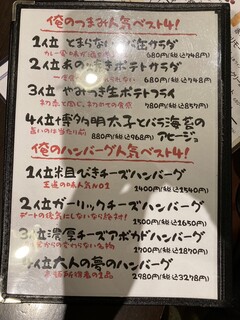 俺のつまみ人気ベスト4!
1位 とまらない バ缶サラダ
680円(税込748円)
2位 あの きポテトサラダ
680円(税込748円)
3位 やみつき生ポテトフライ
780円(税込857円)
4位 博多明太子とバラ海苔の
旨いのは当たり前 アヒージョ
880円(税込968円)
俺のハンバーグ人気ベスト4!
1位 粗びきチーズハンバーグ
王道の人気NO1 1400円(税込1540円)
2位 ガーリックチーズハンバーグ
デートの後先にしないなら絶対! 1500円(税込1650円)
3位 濃厚チーズアボカドハンバーグ
からのかわらない名物 1700円(税込1870円)
4位 大人の夢のハンバーグ
2980円(税込3278円)